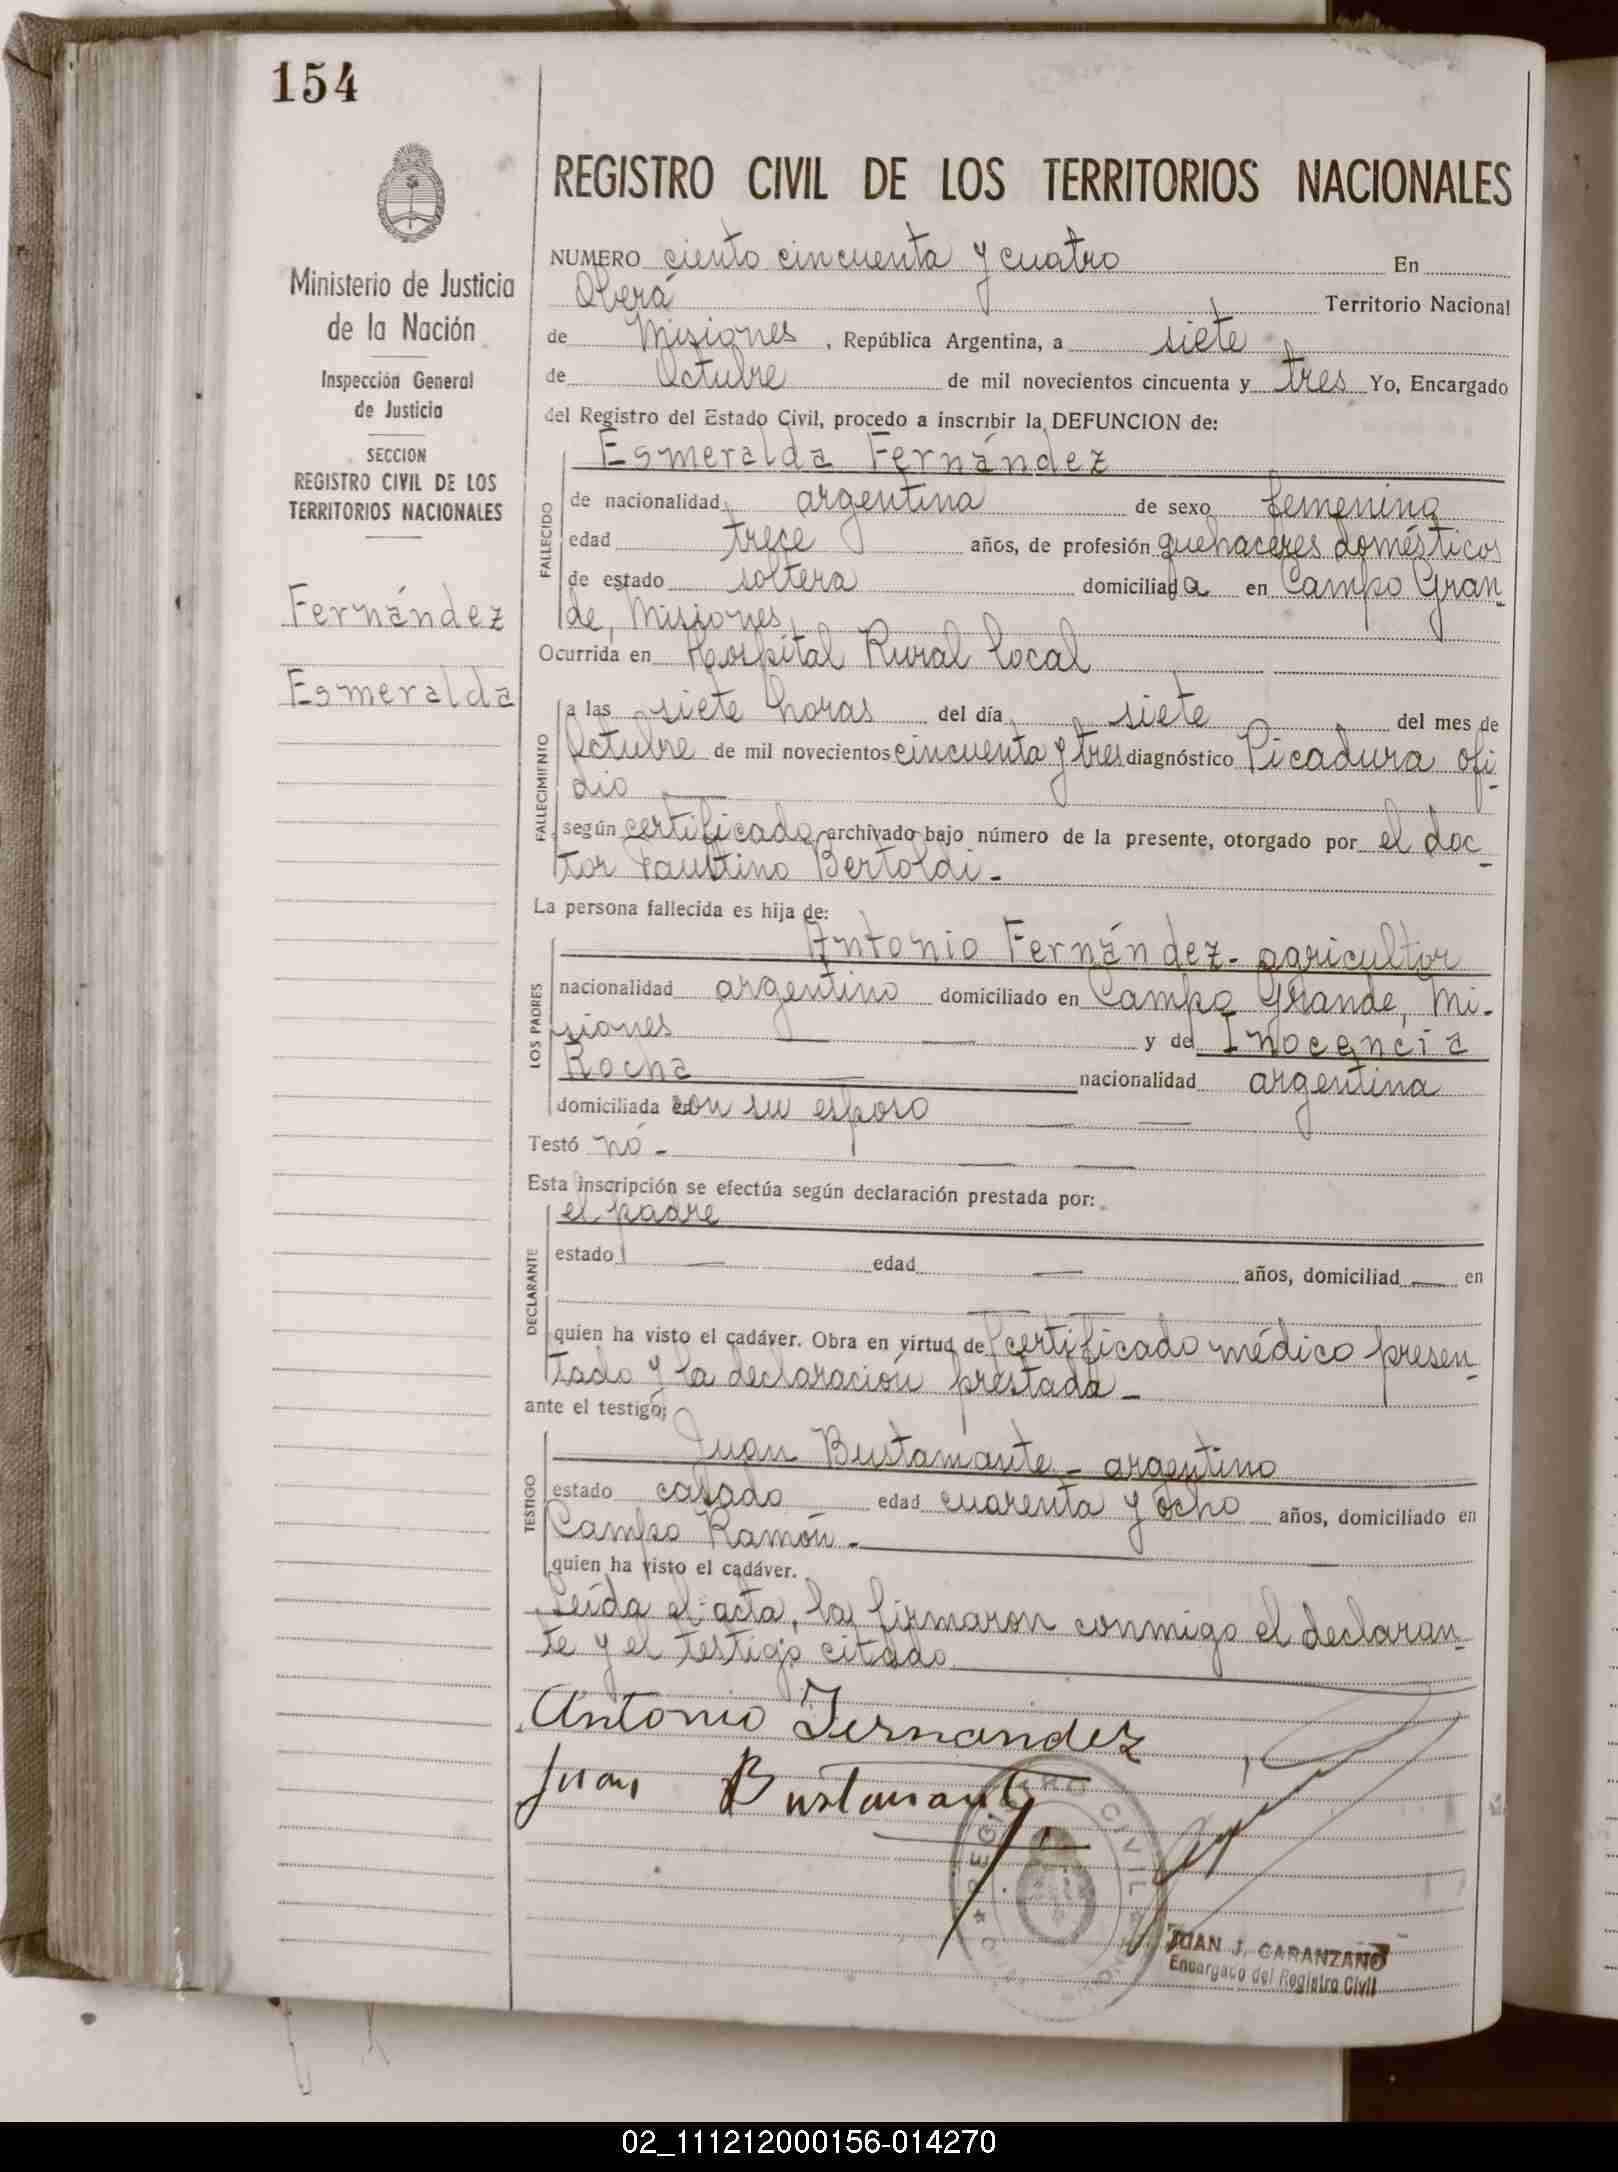 154
Ministerio de Justicia
de la Nación
Inspección General
de Justicia
SECCION
REGISTRO CIVIL DE LOS
TERRITORIOS NACIONALES
Fernández
Esmeralda
REGISTRO CIVIL DE LOS TERRITORIOS NACIONALES
NUMERO ciento cincuenta y cuatro En
Oberá Territorio Nacional
de Misiones, República Argentina, a siete
de Octubre de mil novecientos cincuenta y tres Yo, Encargado
del Registro del Estado Civil, procedo a inscribir la DEFUNCION de:
FALLECIDO
Esmeralda Fernández
de nacionalidad argentina de sexo femenino
edad trece años, de profesión quehaceres domésticos
de estado soltera domiciliada en Campo Gran-
de, Misiones
Ocurrida en Hospital Rural local
FALLECIMIENTO
a las siete horas del día siete del mes de
Octubre de mil novecientos cincuenta y tres diagnóstico Picadura ofi-
dio
según certificado archivado bajo número de la presente, otorgado por el doc-
tor Faustino Bertoldi -
La persona fallecida es hija de:
LOS PADRES
Antonio Fernández - agricultor
nacionalidad argentino domiciliado en Campo Grande, Mi-
siones y de Inocencia
Rocha nacionalidad argentina
domiciliada en con su esposo
Testó nó -
Esta inscripción se efectúa según declaración prestada por:
DECLARANTE
el padre
estado edad años, domiciliad en
quien ha visto el cadáver. Obra en virtud de certificado médico presen-
tado y la declaración prestada -
ante el testigo:
TESTIGO
Juan Bustamante - argentino
estado casado edad cuarenta y ocho años, domiciliado en
Campo Ramón -
quien ha visto el cadáver.
Leída el acta, la firmaron conmigo el declaran-
te y el testigo citado
Antonio Fernandez
Juan Bustamante
REGISTRO CIVIL
JUAN J. CARANZANO
Encargado del Registro Civil
02_111212000156-014270